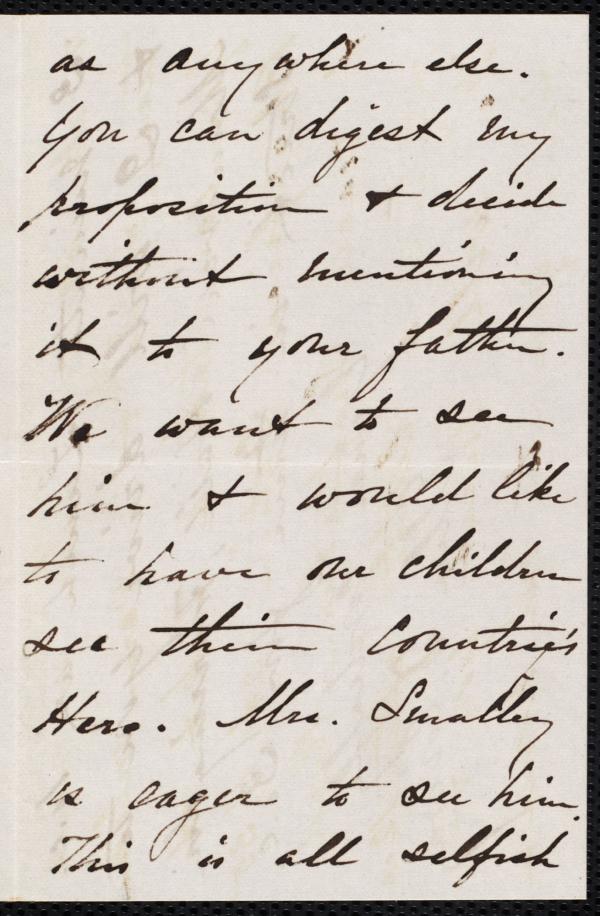 as anywhere else.
You can digest my
proposition & decide
without mentioning
it to your father.
We want to see
him & would like
to have our children
see their Countrie's
Hero. Mrs. Smalley
is eager to see him.
This is all selfish